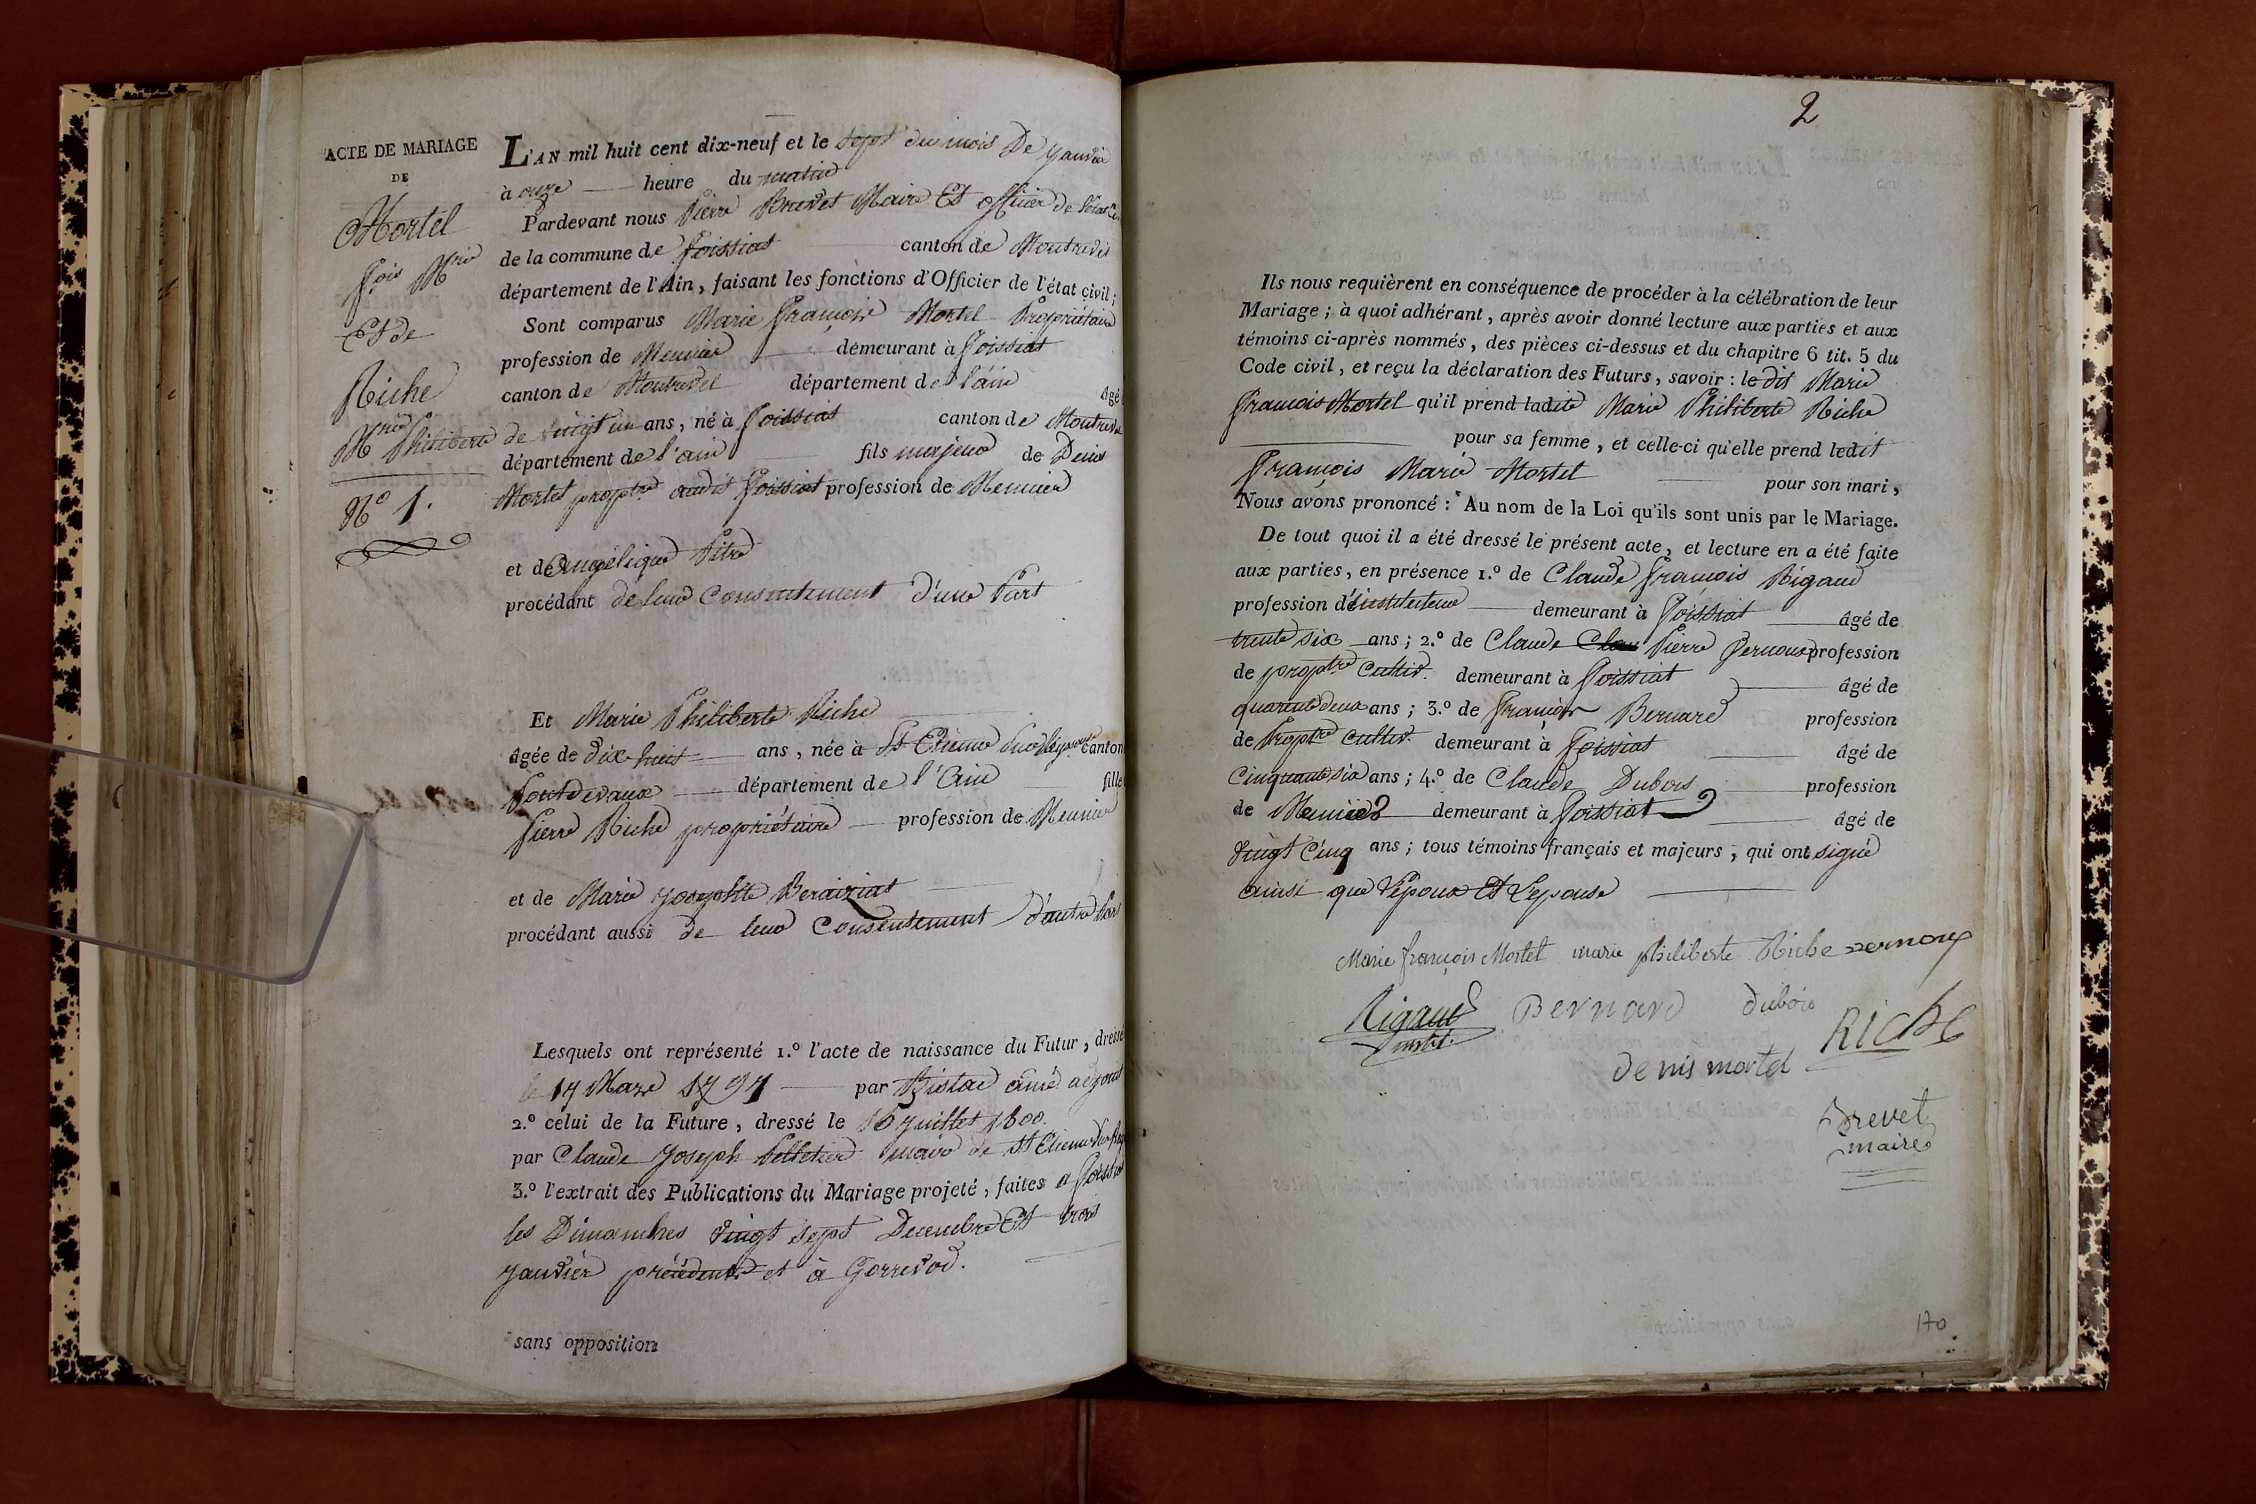 ACTE DE MARIAGE
DE
Mortel
fois Mrie
Et de
Riche
Mrie Philiberte
No 1.
L'AN mil huit cent dix-neuf et le sept du mois De janvier
à onze heure du matin
Pardevant nous Pierre Brevet Maire Et officier de l'état
de la commune de foissiat canton de Montrevel
département de l'Ain, faisant les fonctions d'Officier de l'état civil;
Sont comparus Marie françois Mortel Propriétaire
profession de Meunier demeurant à foissiat
canton de Montrevel département de l'ain âgé
de vingt un ans, né à foissiat canton de Montrevel
département de l'ain fils majeur de Denis
Mortel proptre audit foissiat profession de Meunier
et de Angélique Pitre
procédant de leur Consentement d'une Part
Et Marie Philiberte Riche
âgée de dix huit ans, née à St Etienne sur Reyssouze canton
Pontdevaux département de l'Ain fille
Pierre Riche propriétaire profession de Meunier
et de Marie josephte Beraiziat
procédant aussi de leur Consentement d'autre Part
Lesquels ont représenté 1.º l'acte de naissance du Futur, dressé
le 17 Mars 1797 par
2.º celui de la Future, dressé le 16 juillet 1800.
par Claude joseph Pelletier maire de St Etienne sur
3.º l'extrait des Publications du Mariage projeté, faites a foissiat
les Dimanches vingt sept Decembre Et trois
janvier précédents et à Gorrevod.
sans opposition
2
Ils nous requièrent en conséquence de procéder à la célébration de leur
Mariage; à quoi adhérant, après avoir donné lecture aux parties et aux
témoins ci-après nommés, des pièces ci-dessus et du chapitre 6 tit. 5 du
Code civil, et reçu la déclaration des Futurs, savoir: le dit Marie
françois Mortel qu'il prend ladite Marie Philiberte Riche
pour sa femme, et celle-ci qu'elle prend ledit
françois Marie Mortel pour son mari,
Nous avons prononcé: Au nom de la Loi qu'ils sont unis par le Mariage.
De tout quoi il a été dressé le présent acte, et lecture en a été faite
aux parties, en présence 1.º de Claude françois Rigaud
profession d'instituteur demeurant à foissiat âgé de
trente six ans; 2.º de Claude Pierre Pernoux profession
de proptre cultiv. demeurant à foissiat âgé de
quarante deux ans; 3.º de françois Bernard profession
de Proptre cultiv. demeurant à foissiat âgé de
Cinquante six ans; 4.º de Claude Dubois profession
de Meunier demeurant à foissiat âgé de
vingt Cinq ans; tous témoins français et majeurs, qui ont signé
ainsi que l'époux Et l'épouse
Marie françois Mortel marie philiberte Riche pernoux
Rigaud Bernard dubois RICHE
instit.
denis mortel
Brevet
maire
170